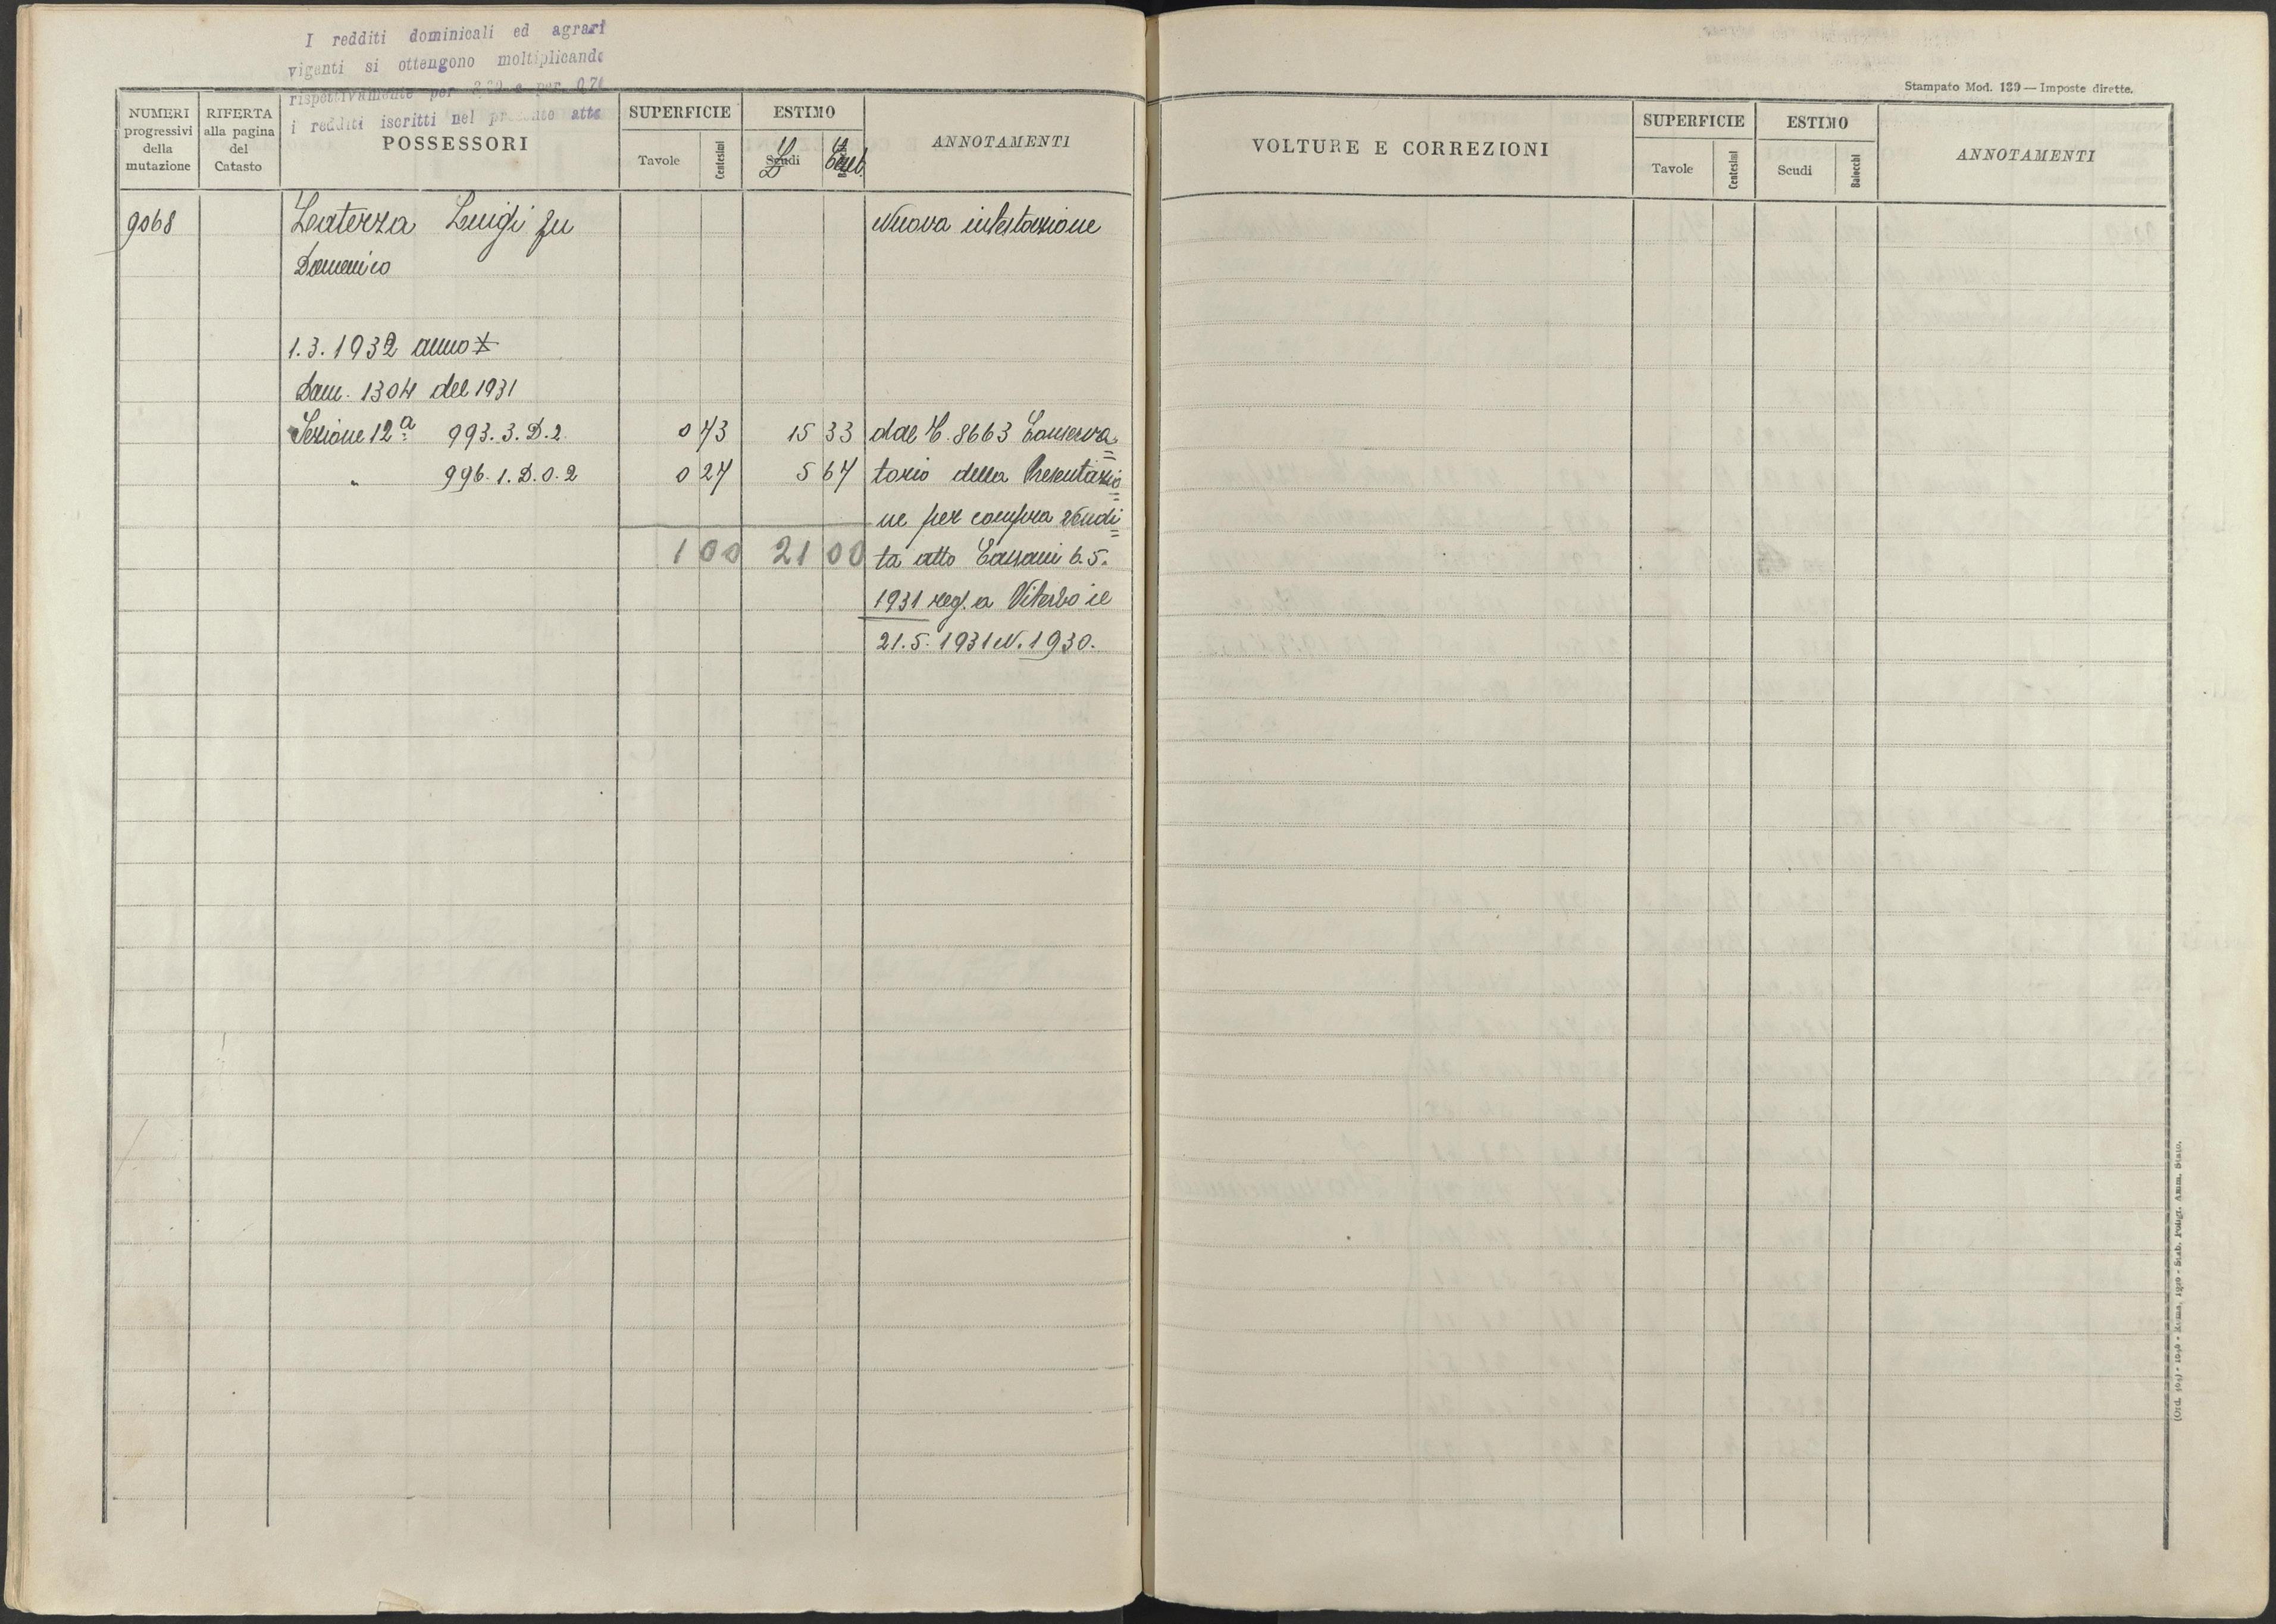 I redditi dominicali ed agrari
vigenti si ottengono moltiplicando
rispettivamente per e per 0,70
i redditi iscritti nel presente atto
NUMERI progressivi della mutazione
RIFERTA alla pagina del Catasto
POSSESSORI
SUPERFICIE
Tavole
Centesimi
ESTIMO
Scudi L
Cent.
ANNOTAMENTI
9068 Laterza Luigi fu Nuova intestazione
Domenico
1.3.1932 anno X
Dam. 1304 del 1931
Sezione 12ª 993.3.D.2 0 73 15 33 dal C. 8663 Conserva=
" 996.1.D.O.2 0 27 5 67 torio della Presentazio=
ne per compra vendi=
1 00 21 00 ta atto Cassani 6.5.
1931 reg. a Viterbo il
21.5.1931 N. 1930.
Stampato Mod. 139 — Imposte dirette.
VOLTURE E CORREZIONI
SUPERFICIE
Tavole
Centesimi
ESTIMO
Scudi
Baiocchi
ANNOTAMENTI
Roma, - Stab. Poligr. Amm. Stato.